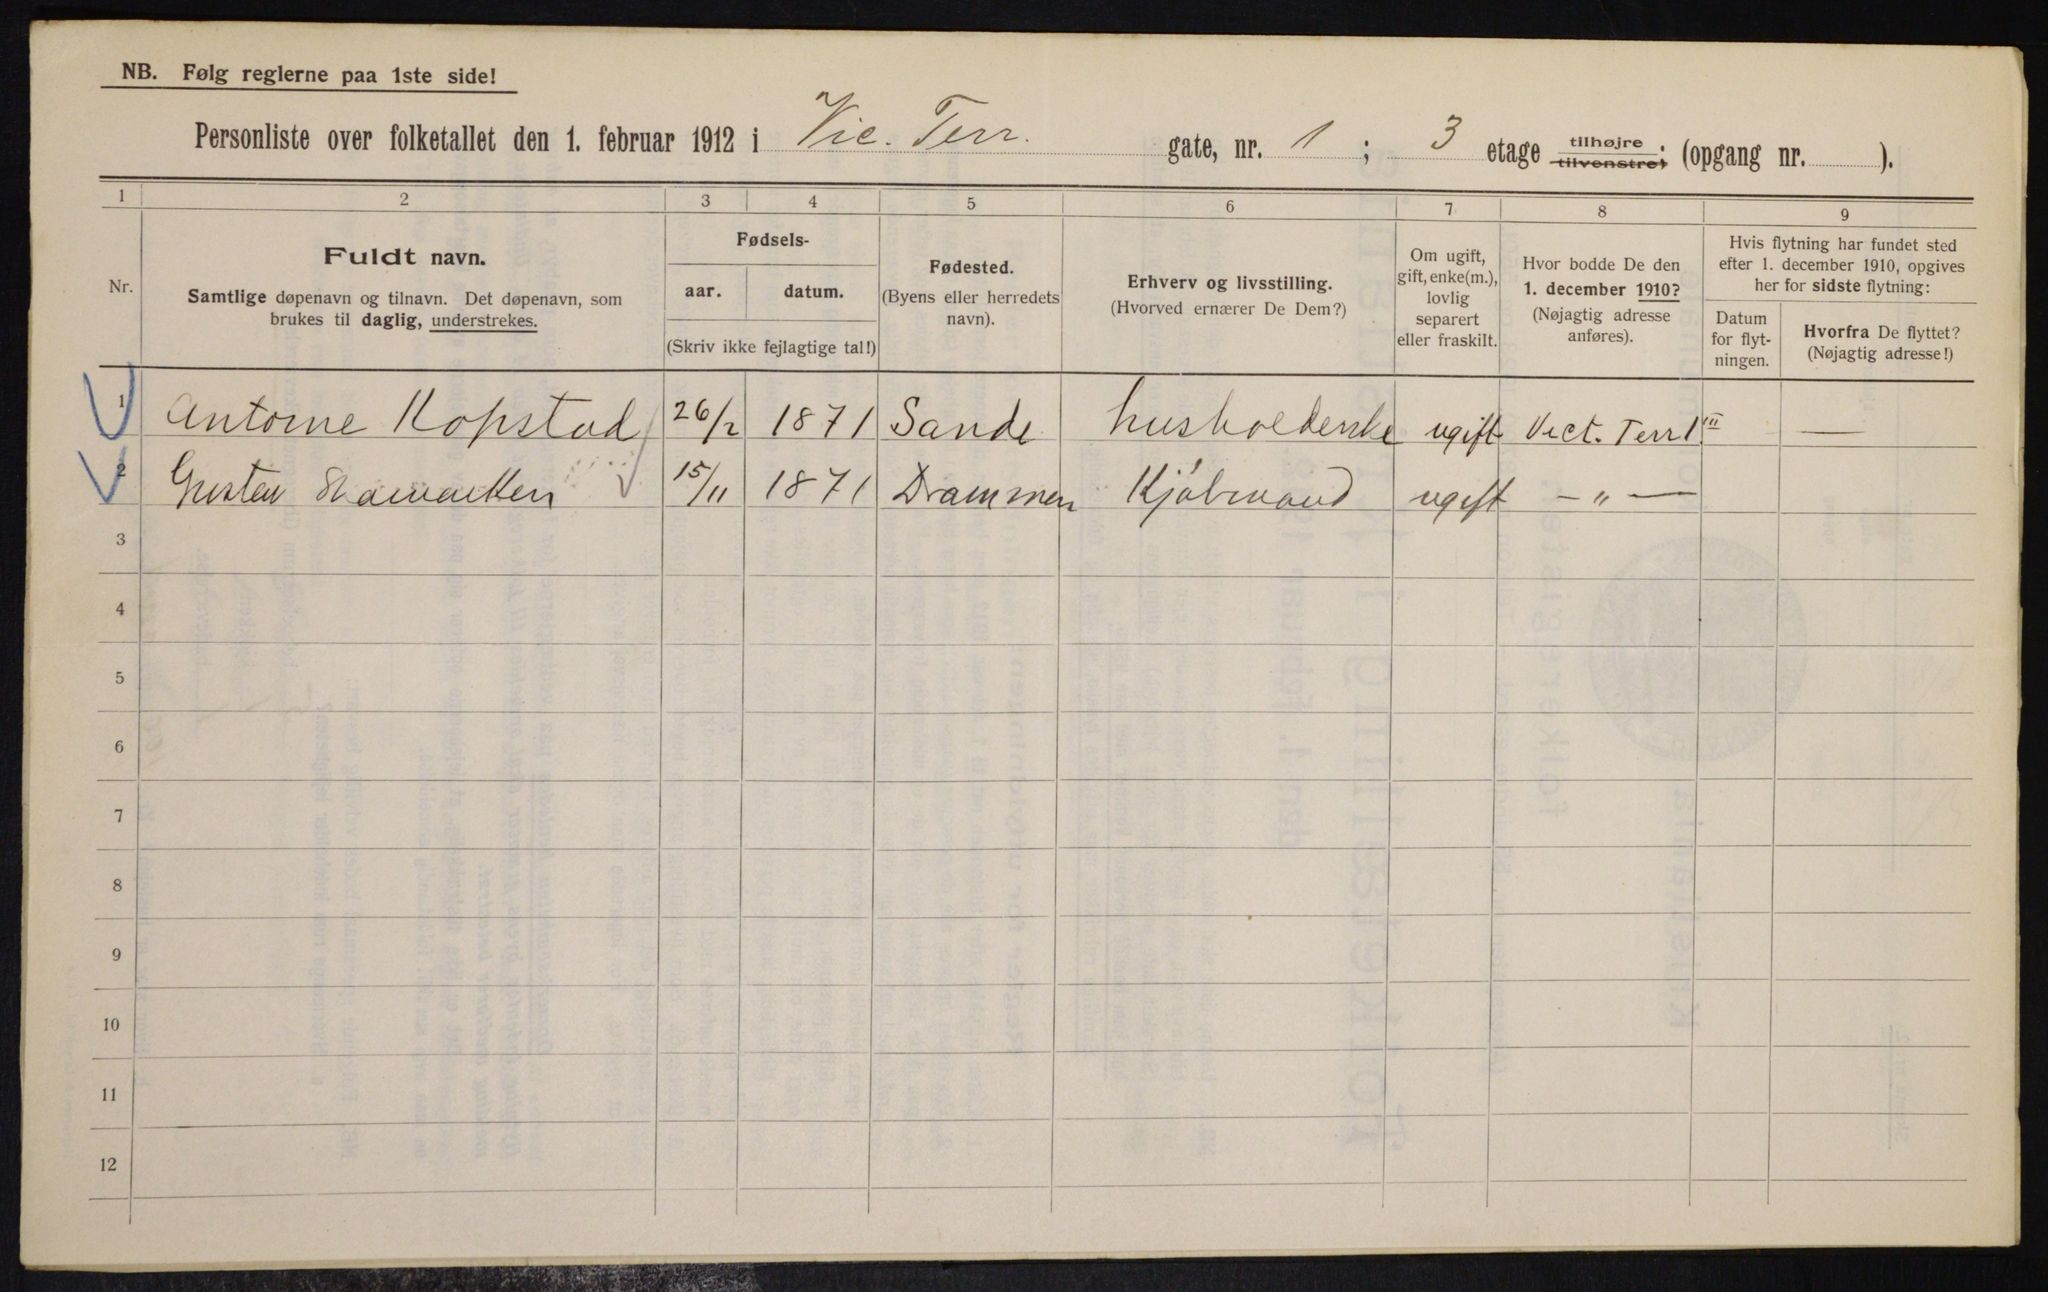 NB. Følg reglerne paa 1ste side!
Personliste over folketallet den 1. februar 1912 i Vic. Terr. gate, nr. 1 ; 3 etage tilhøjre tilvenstre; (opgang nr. ).
1 2 3 4 5 6 7 8 9
Nr.
Fuldt navn.
Samtlige døpenavn og tilnavn. Det døpenavn, som
brukes til daglig, understrekes.
Fødsels-
aar. datum.
(Skriv ikke fejlagtige tal!)
Fødested.
(Byens eller herredets
navn).
Erhverv og livsstilling.
(Hvorved ernærer De Dem?)
Om ugift,
gift, enke(m.),
lovlig
separert
eller fraskilt.
Hvor bodde De den
1. december 1910?
(Nøjagtig adresse
anføres).
Hvis flytning har fundet sted
efter 1. december 1910, opgives
her for sidste flytning:
Datum
for flyt-
ningen.
Hvorfra De flyttet?
(Nøjagtig adresse!)
1 Antorne Kopstad 26/2 1871 Sande husholderske ugift Vict. Terr 1 III —
2 Gustav 15/11 1871 Drammen Kjøbmand ugift — " —
3
4
5
6
7
8
9
10
11
12